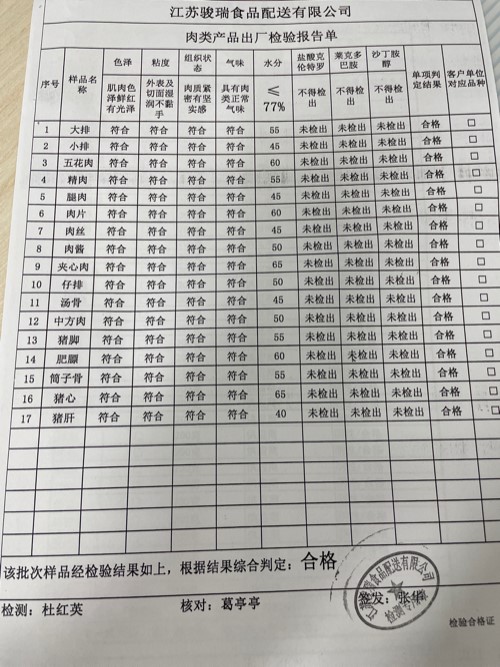 江苏骏瑞食品配送有限公司
肉类产品出厂检验报告单
序号 样品名称 色泽 粘度 组织状态 气味 水分 盐酸克伦特罗 莱克多巴胺 沙丁胺醇 单项判定结果 客户单位对应品种
肌肉色泽鲜红有光泽 外表及切面湿润不黏手 肉质紧密有坚实感 具有肉类正常气味 ≤77% 不得检出 不得检出 不得检出
1 大排 符合 符合 符合 符合 55 未检出 未检出 未检出 合格 □
2 小排 符合 符合 符合 符合 45 未检出 未检出 未检出 合格 □
3 五花肉 符合 符合 符合 符合 60 未检出 未检出 未检出 合格 □
4 精肉 符合 符合 符合 符合 55 未检出 未检出 未检出 合格 □
5 腿肉 符合 符合 符合 符合 45 未检出 未检出 未检出 合格 □
6 肉片 符合 符合 符合 符合 60 未检出 未检出 未检出 合格 □
7 肉丝 符合 符合 符合 符合 45 未检出 未检出 未检出 合格 □
8 肉酱 符合 符合 符合 符合 50 未检出 未检出 未检出 合格 □
9 夹心肉 符合 符合 符合 符合 65 未检出 未检出 未检出 合格 □
10 仔排 符合 符合 符合 符合 50 未检出 未检出 未检出 合格 □
11 汤骨 符合 符合 符合 符合 45 未检出 未检出 未检出 合格 □
12 中方肉 符合 符合 符合 符合 50 未检出 未检出 未检出 合格 □
13 猪脚 符合 符合 符合 符合 55 未检出 未检出 未检出 合格 □
14 肥膘 符合 符合 符合 符合 60 未检出 未检出 未检出 合格 □
15 筒子骨 符合 符合 符合 符合 55 未检出 未检出 未检出 合格 □
16 猪心 符合 符合 符合 符合 65 未检出 未检出 未检出 合格 □
17 猪肝 符合 符合 符合 符合 40 未检出 未检出 未检出 合格 □
该批次样品经检验结果如上，根据结果综合判定：合格
江苏骏瑞食品配送有限公司
检测专用章
检测：杜红英 核对：葛亭亭 签发：张华
检验合格证